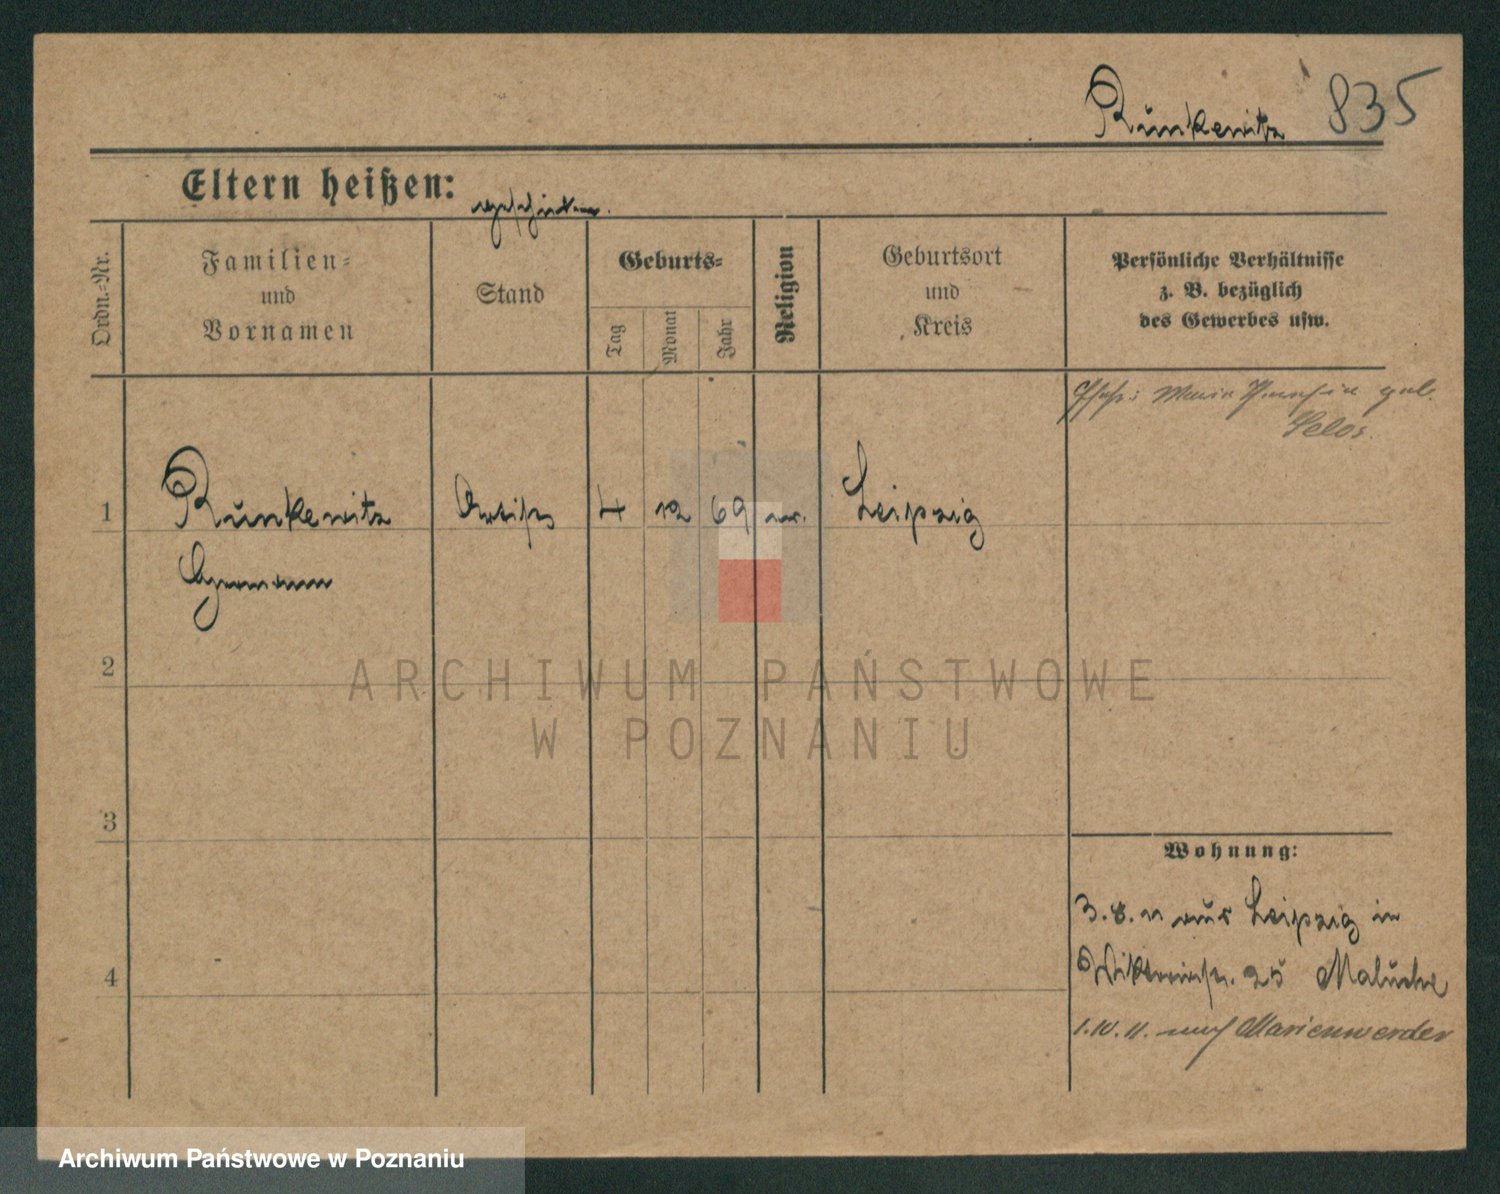 Runkewitz 835
Eltern heißen:
geschieden.
Ordn.-Nr.
Familien-
und
Vornamen
Stand
Geburts-
Tag
Monat
Jahr
Religion
Geburtsort
und
Kreis
Persönliche Verhältnisse
z. B. bezüglich
des Gewerbes usw.
Ehefr: Maria geb.
1 Runkewitz Artist 4 12 69 ev. Leipzig
Hermann
2
3
4
Wohnung:
3.8.11 aus Leipzig in
Viktoriastr. 25
1.10.11. nach Marienwerder
ARCHIWUM PAŃSTWOWE
W POZNANIU
Archiwum Państwowe w Poznaniu